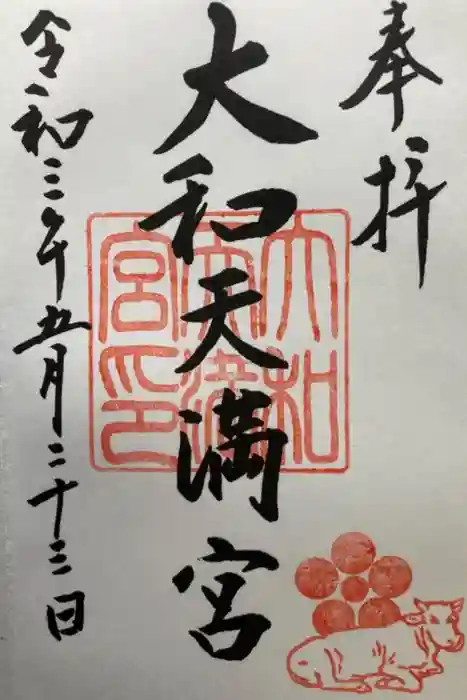 奉拝
大和天満宮
令和三年五月二十三日
大和
天満
宮印